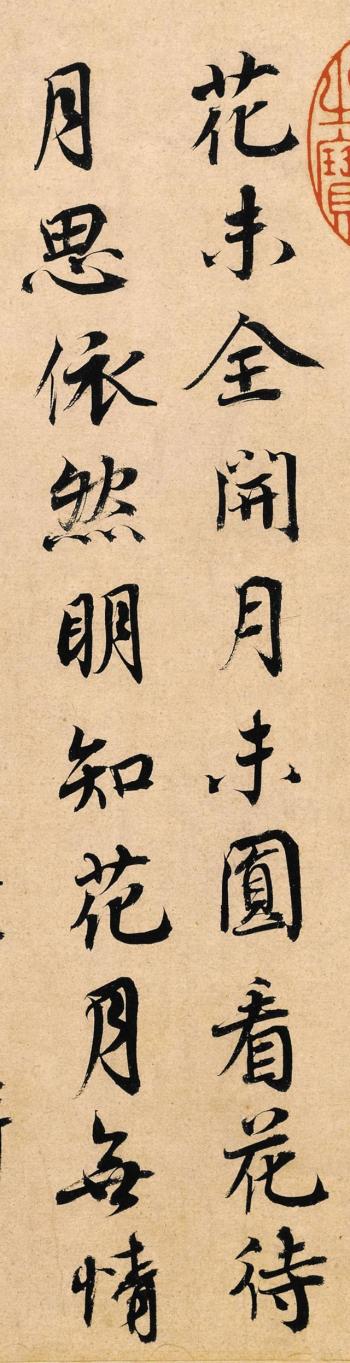 花未全開月未圓看花待
月思依然明知花月無情